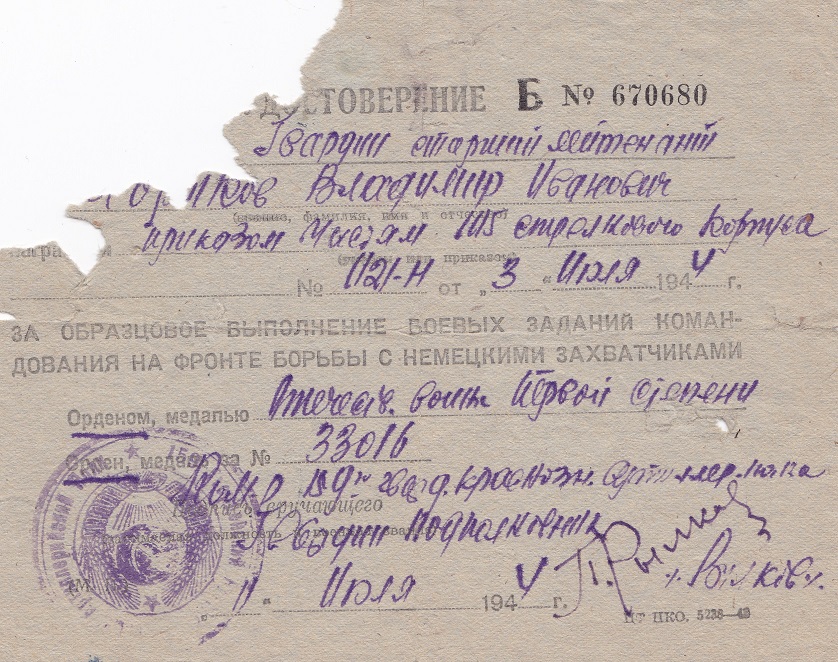 ДОСТОВЕРЕНИЕ Б № 670680
Гвардии старший лейтенант
Владимир Иванович
(звание, фамилия, имя и отчество)
награжден приказом Частям стрелкового Корпуса
(указом или приказом)
№ 1121-Н от „3“ Июля 1944 г.
ЗА ОБРАЗЦОВОЕ ВЫПОЛНЕНИЕ БОЕВЫХ ЗАДАНИЙ КОМАН-
ДОВАНИЯ НА ФРОНТЕ БОРЬБЫ С НЕМЕЦКИМИ ЗАХВАТЧИКАМИ
Орденом, медалью Отечеств. войны Первой степени
Орден, медаль за № 33016
гвард. краснозн. артиллер. полка
вручающего
Гвардии Подполковник
„11“ Июля 1944 г.
5238—43